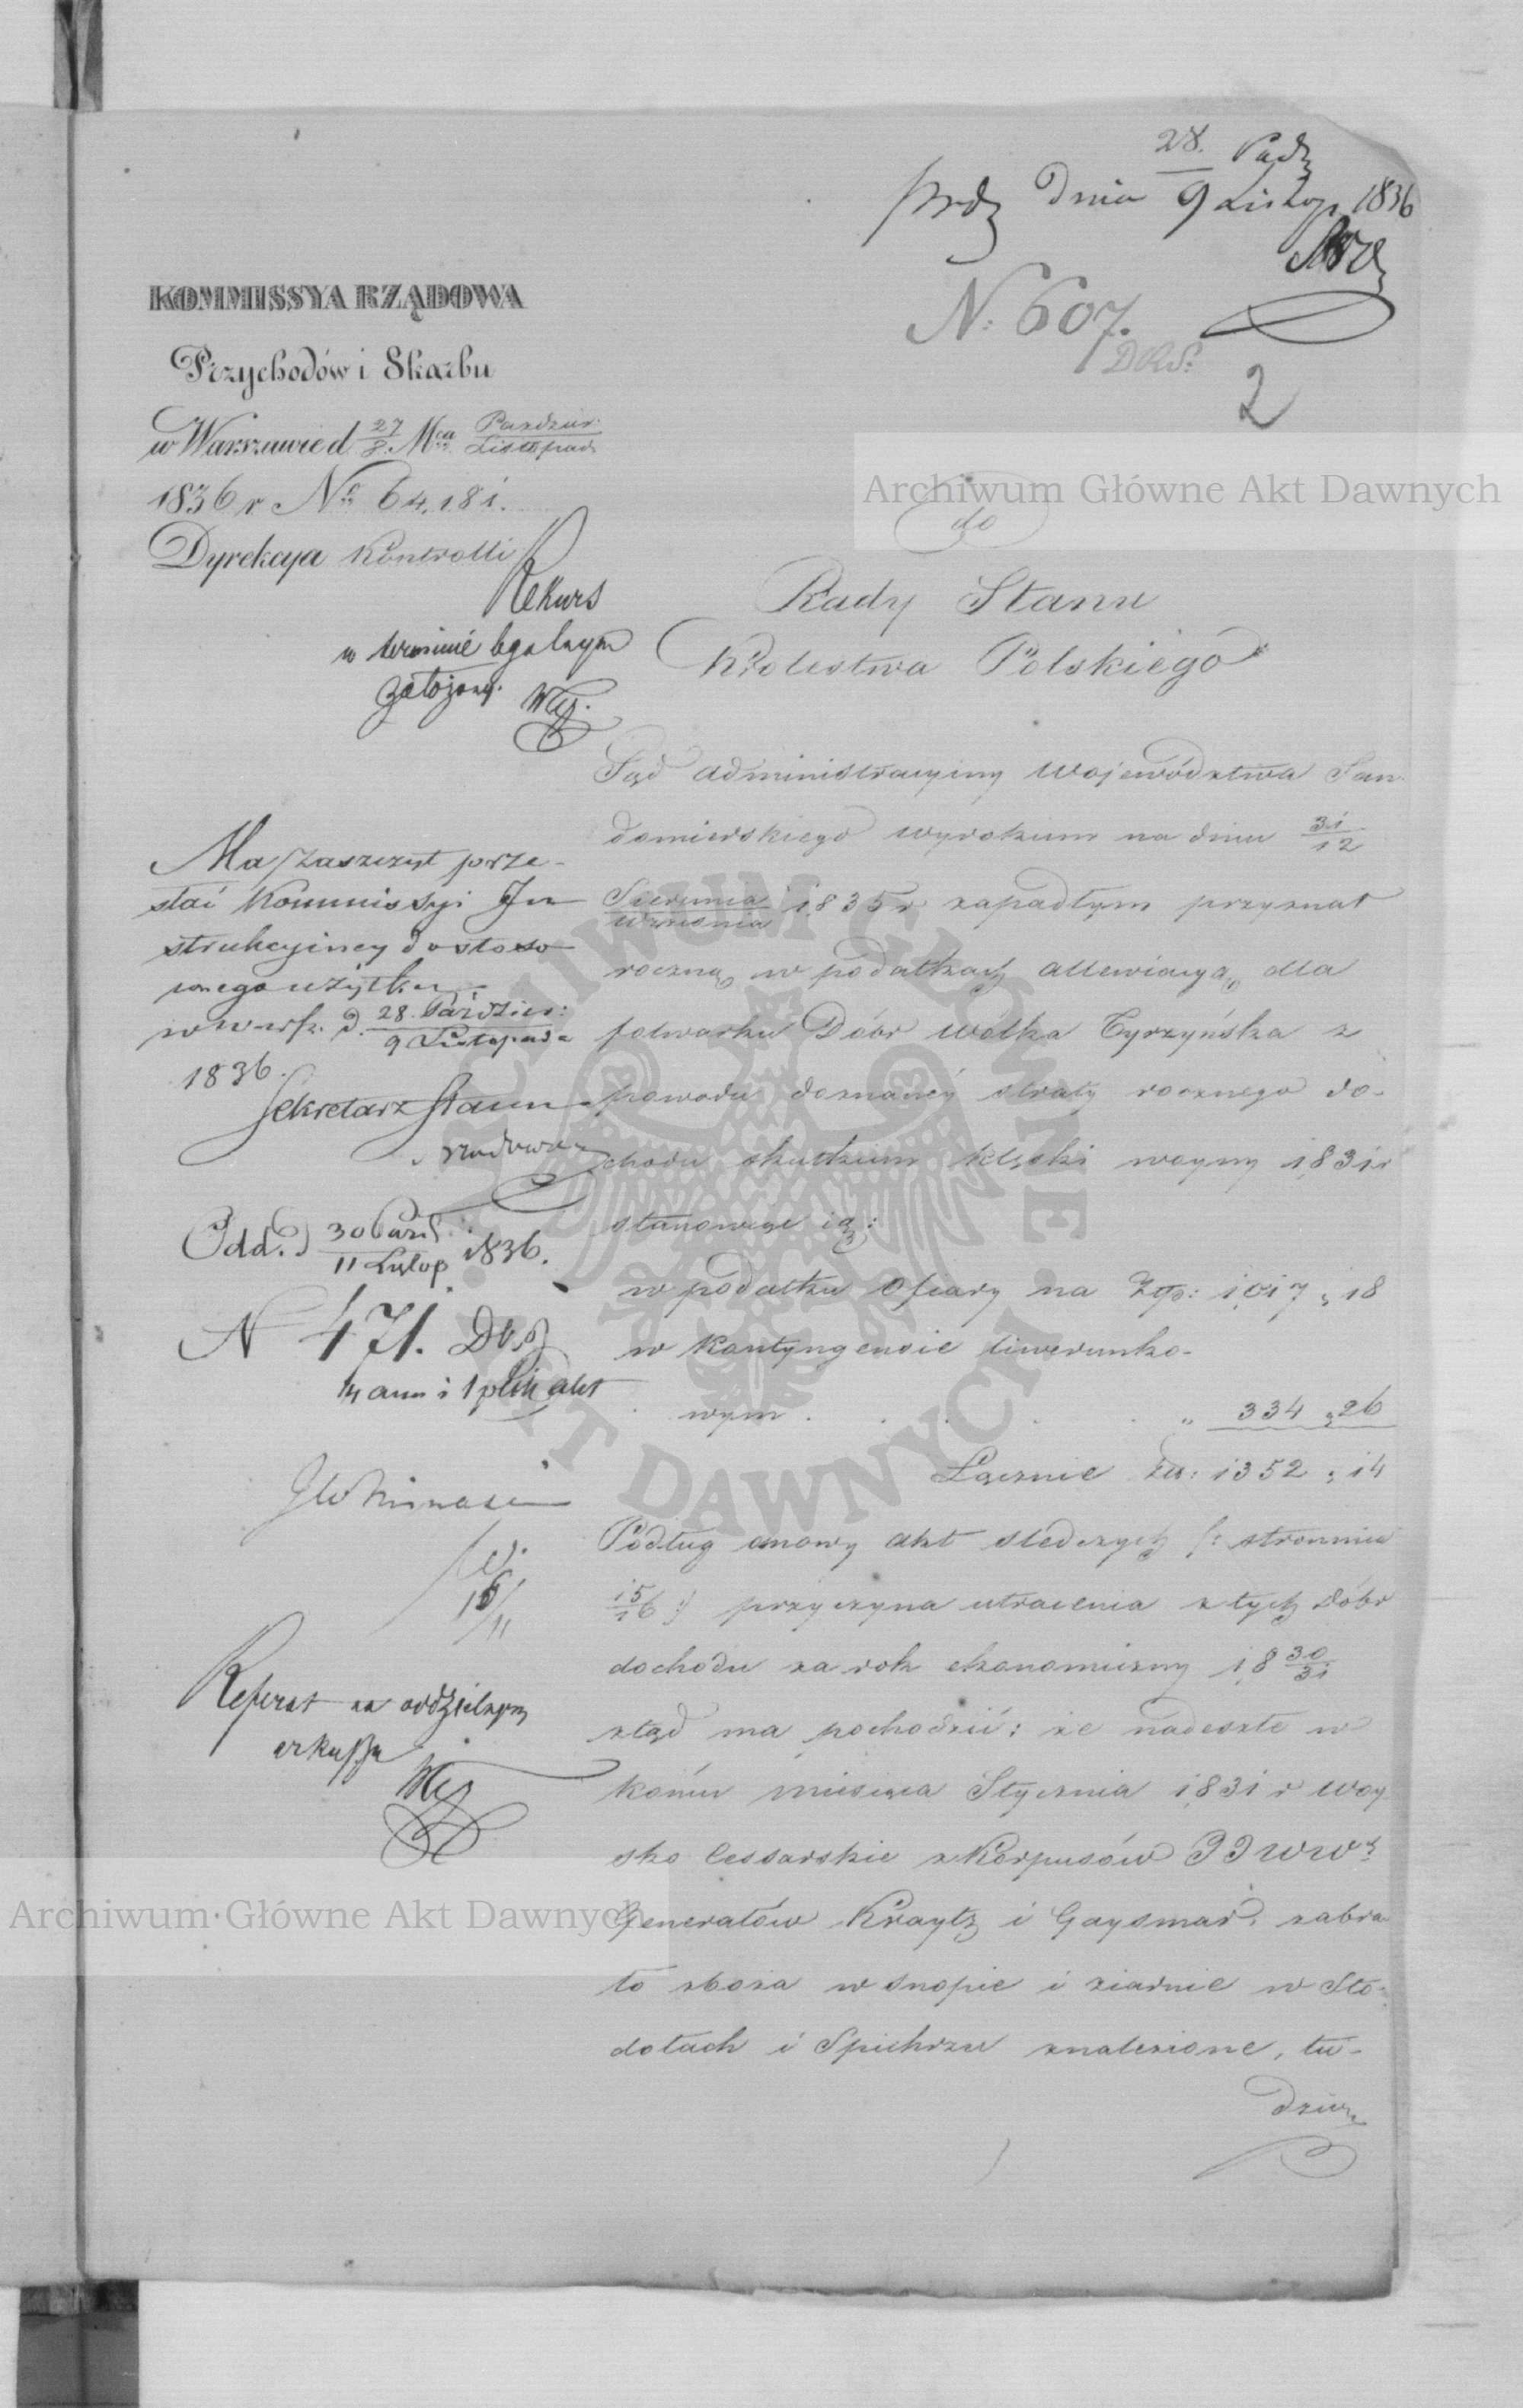 28. Paźdz
prdz Dnia 9 Listop 1836
N: 607.
DRS:
2
KOMMISSYA RZĄDOWA
Przychodów i Skarbu
w Warszawie d 27/8. Mca Paździer:/Listopad.
1836 r No 64,181.
Dyrekcya Kontrolli
Rekurs
w terminie legalnym
założony.
do
Rady Stanu
Królestwa Polskiego
Sąd administracyiny Województwa San-
domierskiego wyrokiem na dniu 31/12
Sierpnia/Września 1835 r zapadłym przyznał
roczną w podatkach allewiacyą dla
folwarku Dóbr Wolka Tyrzyńska z
powodu doznaney straty rocznego do-
chodu skutkiem klęski woyny 1831 r
stanowiąc ią:
w podatku Ofiary na Złp: 1,017 " 18
w kontyngensie liwerunko-
wym . . . . . " 334 " 26
Łącznie Złp: 1352 " 14
Podług osnowy akt śledczych /: stronnica
15/16 :/ przyczyna utracenia z tych Dóbr
dochodu za rok ekonomiczny 18 30/31
ztąd ma pochodzić: że nadeszłe w
końcu miesiąca Stycznia 1831 r woy-
sko Cessarskie z Korpusów JJWWch
Generałów Kraytz i Gaysmar, zabra-
ło zboża w snopie i ziarnie w Sto-
dołach i Spichrzu znalezione, tu-
dzież
Ma zaszczyt prze-
słać Kommissyi In-
strukcyiney do stoso-
wnego użytku
w Warsz. d. 28. Paździer:/9 Listopada
1836.
Sekretarz Stanu
Odd. d 30 Paźd:/11 Listop 1836.
N 471.
1 plik akt
16/11
Referat na oddzielnym
arkuszu
Archiwum Główne Akt Dawnych
Archiwum Główne Akt Dawnych
ARCHIWUM GŁÓWNE AKT DAWNYCH